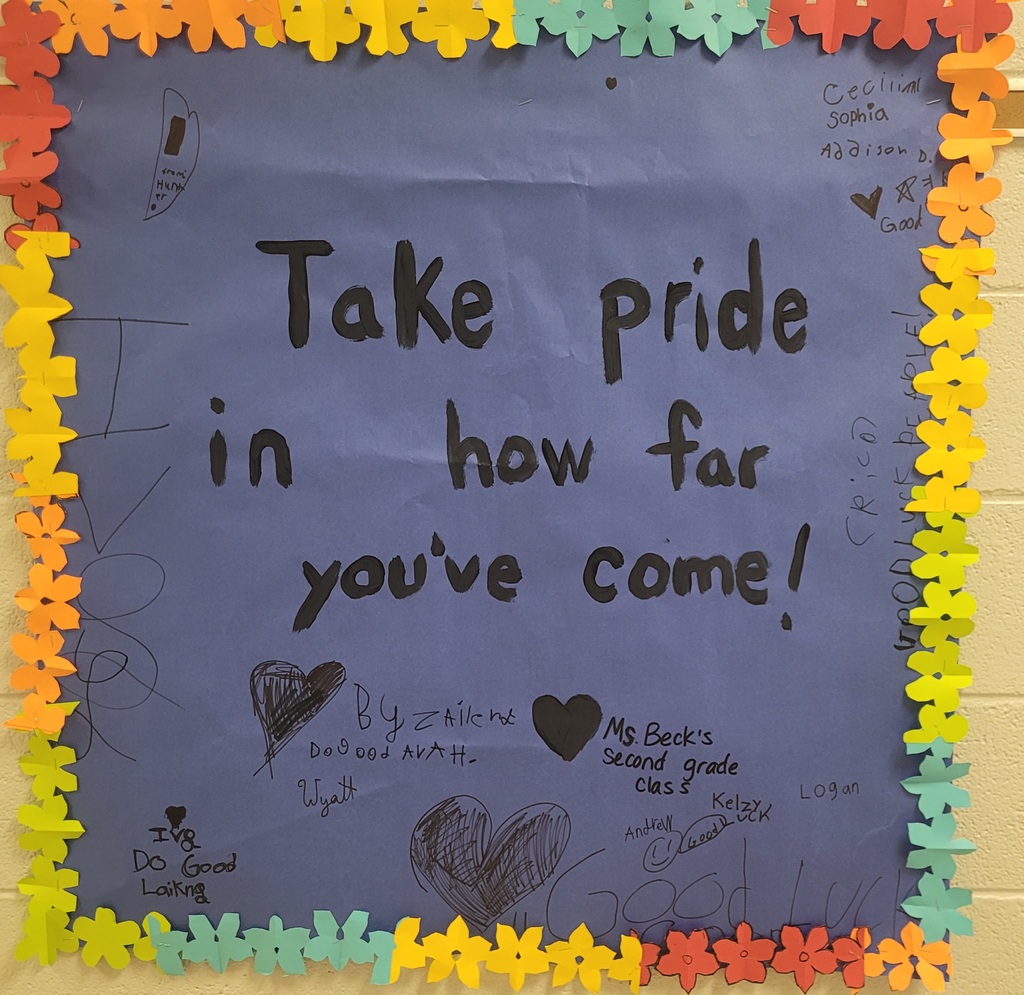 Take pride
in how far
you've come!
Sophia
Addison D.
Good
from:
Hunt
er
GOOD LUCK
(Rico)
BY
DoGood AVAH.
Wyatt
Ms. Beck's
second grade
class
Logan
Kelzy
Andrew
Good
LUCK
DO Good
Laikng
Good Luck